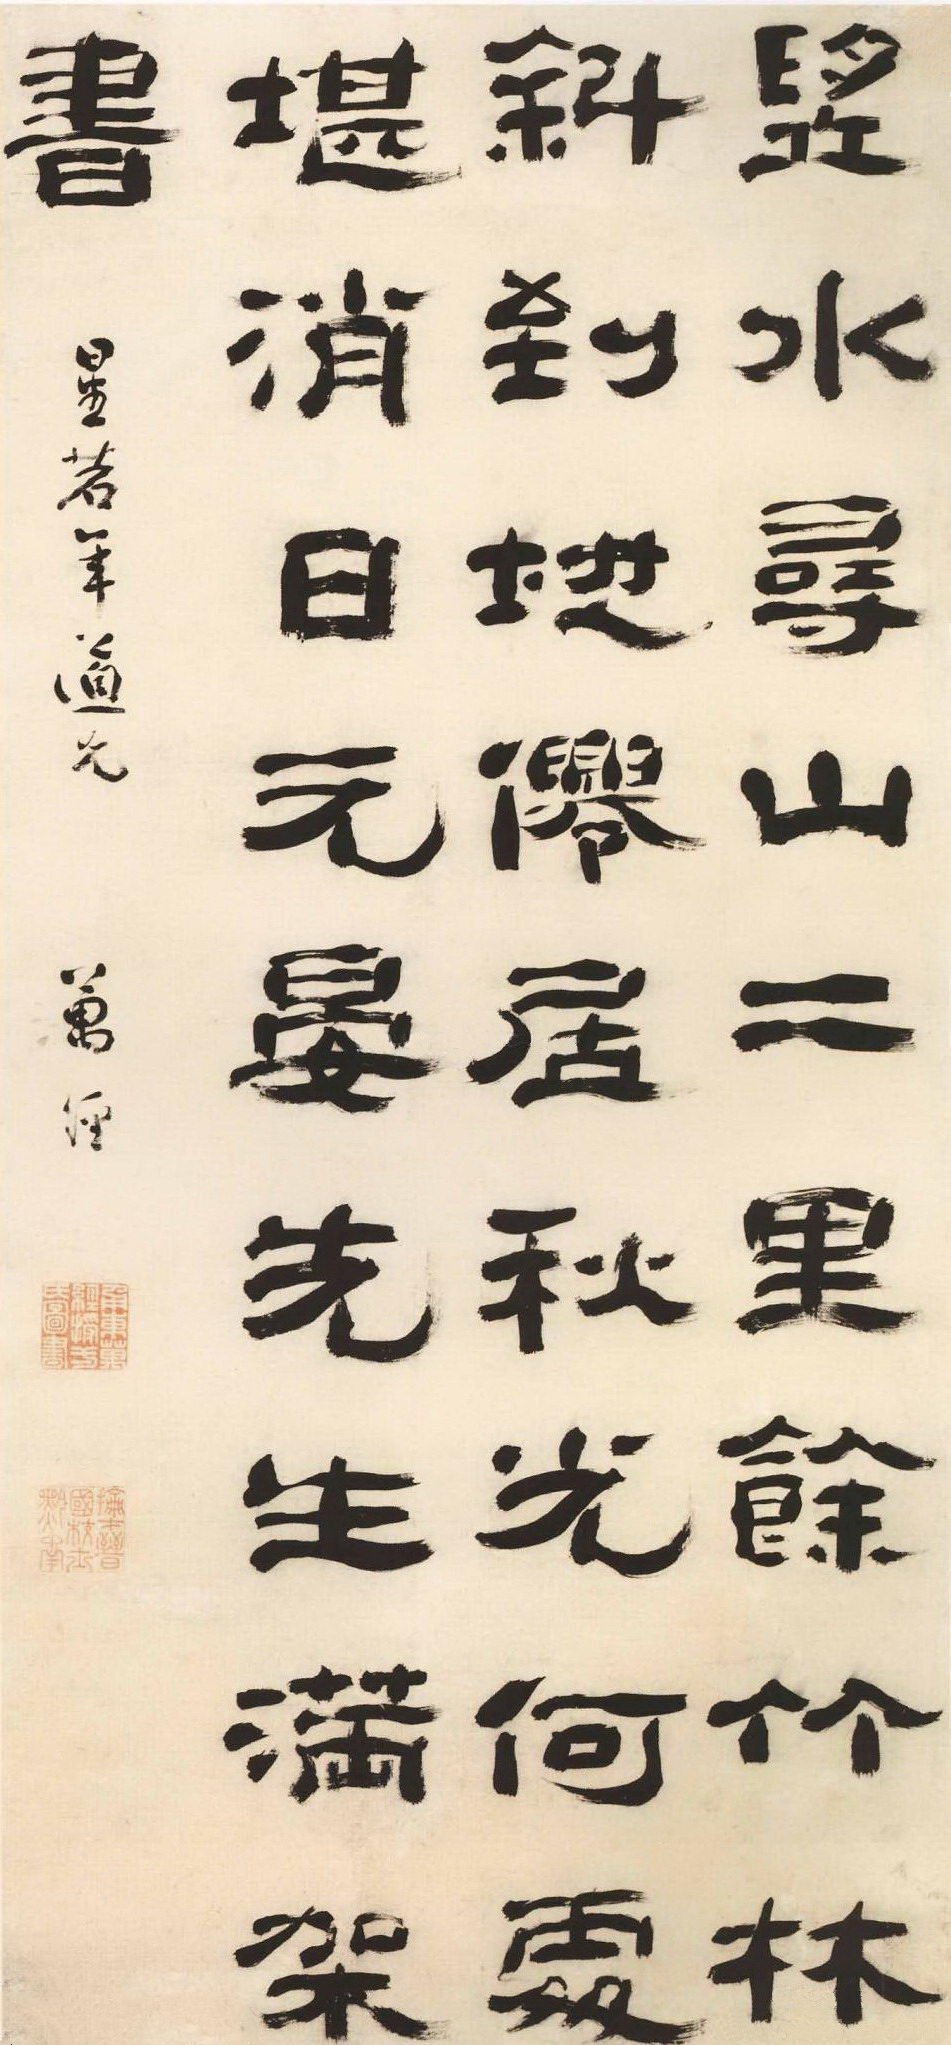 朢水尋山二里餘竹林
斜到地僊居秋光何處
堪消日元晏先生滿架
書 星若年道兄 萬經